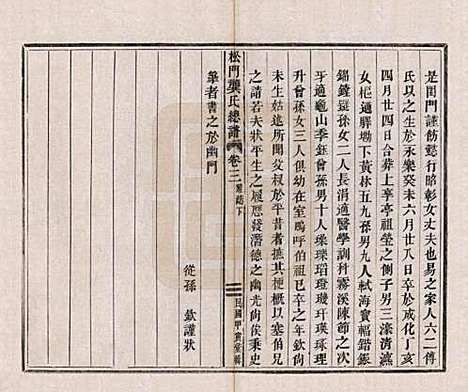 是閨門謹飭懿行昭彰女丈夫也易之家人六二傅
氏以之生於永樂癸未六月廿八日卒於成化丁亥
四月廿四日合葬上亭亭祖塋之側子男三漆清瀛
女柜適驛坳下黃林五九孫男九人軾海寶輻鍇鋠
錫鏸鋌孫女二人長涓適醫學訓科霧溪陳節之次
㺯適龜山季鈺曾孫男十人瓅璨瑙璒璣玕瑛琢理
升曾孫女三人俱幼在室嗚呼伯祖已卒之年欽尚
未生姑述所聞父叔於平昔者撫梗概以塞伯兄
之請若夫狀平生之履歷發潛德之幽光尚俟秉史
筆者書之於幽門
從孫 欽謹狀
松門龔氏總譜 卷三 墓誌下
民國甲寅堂